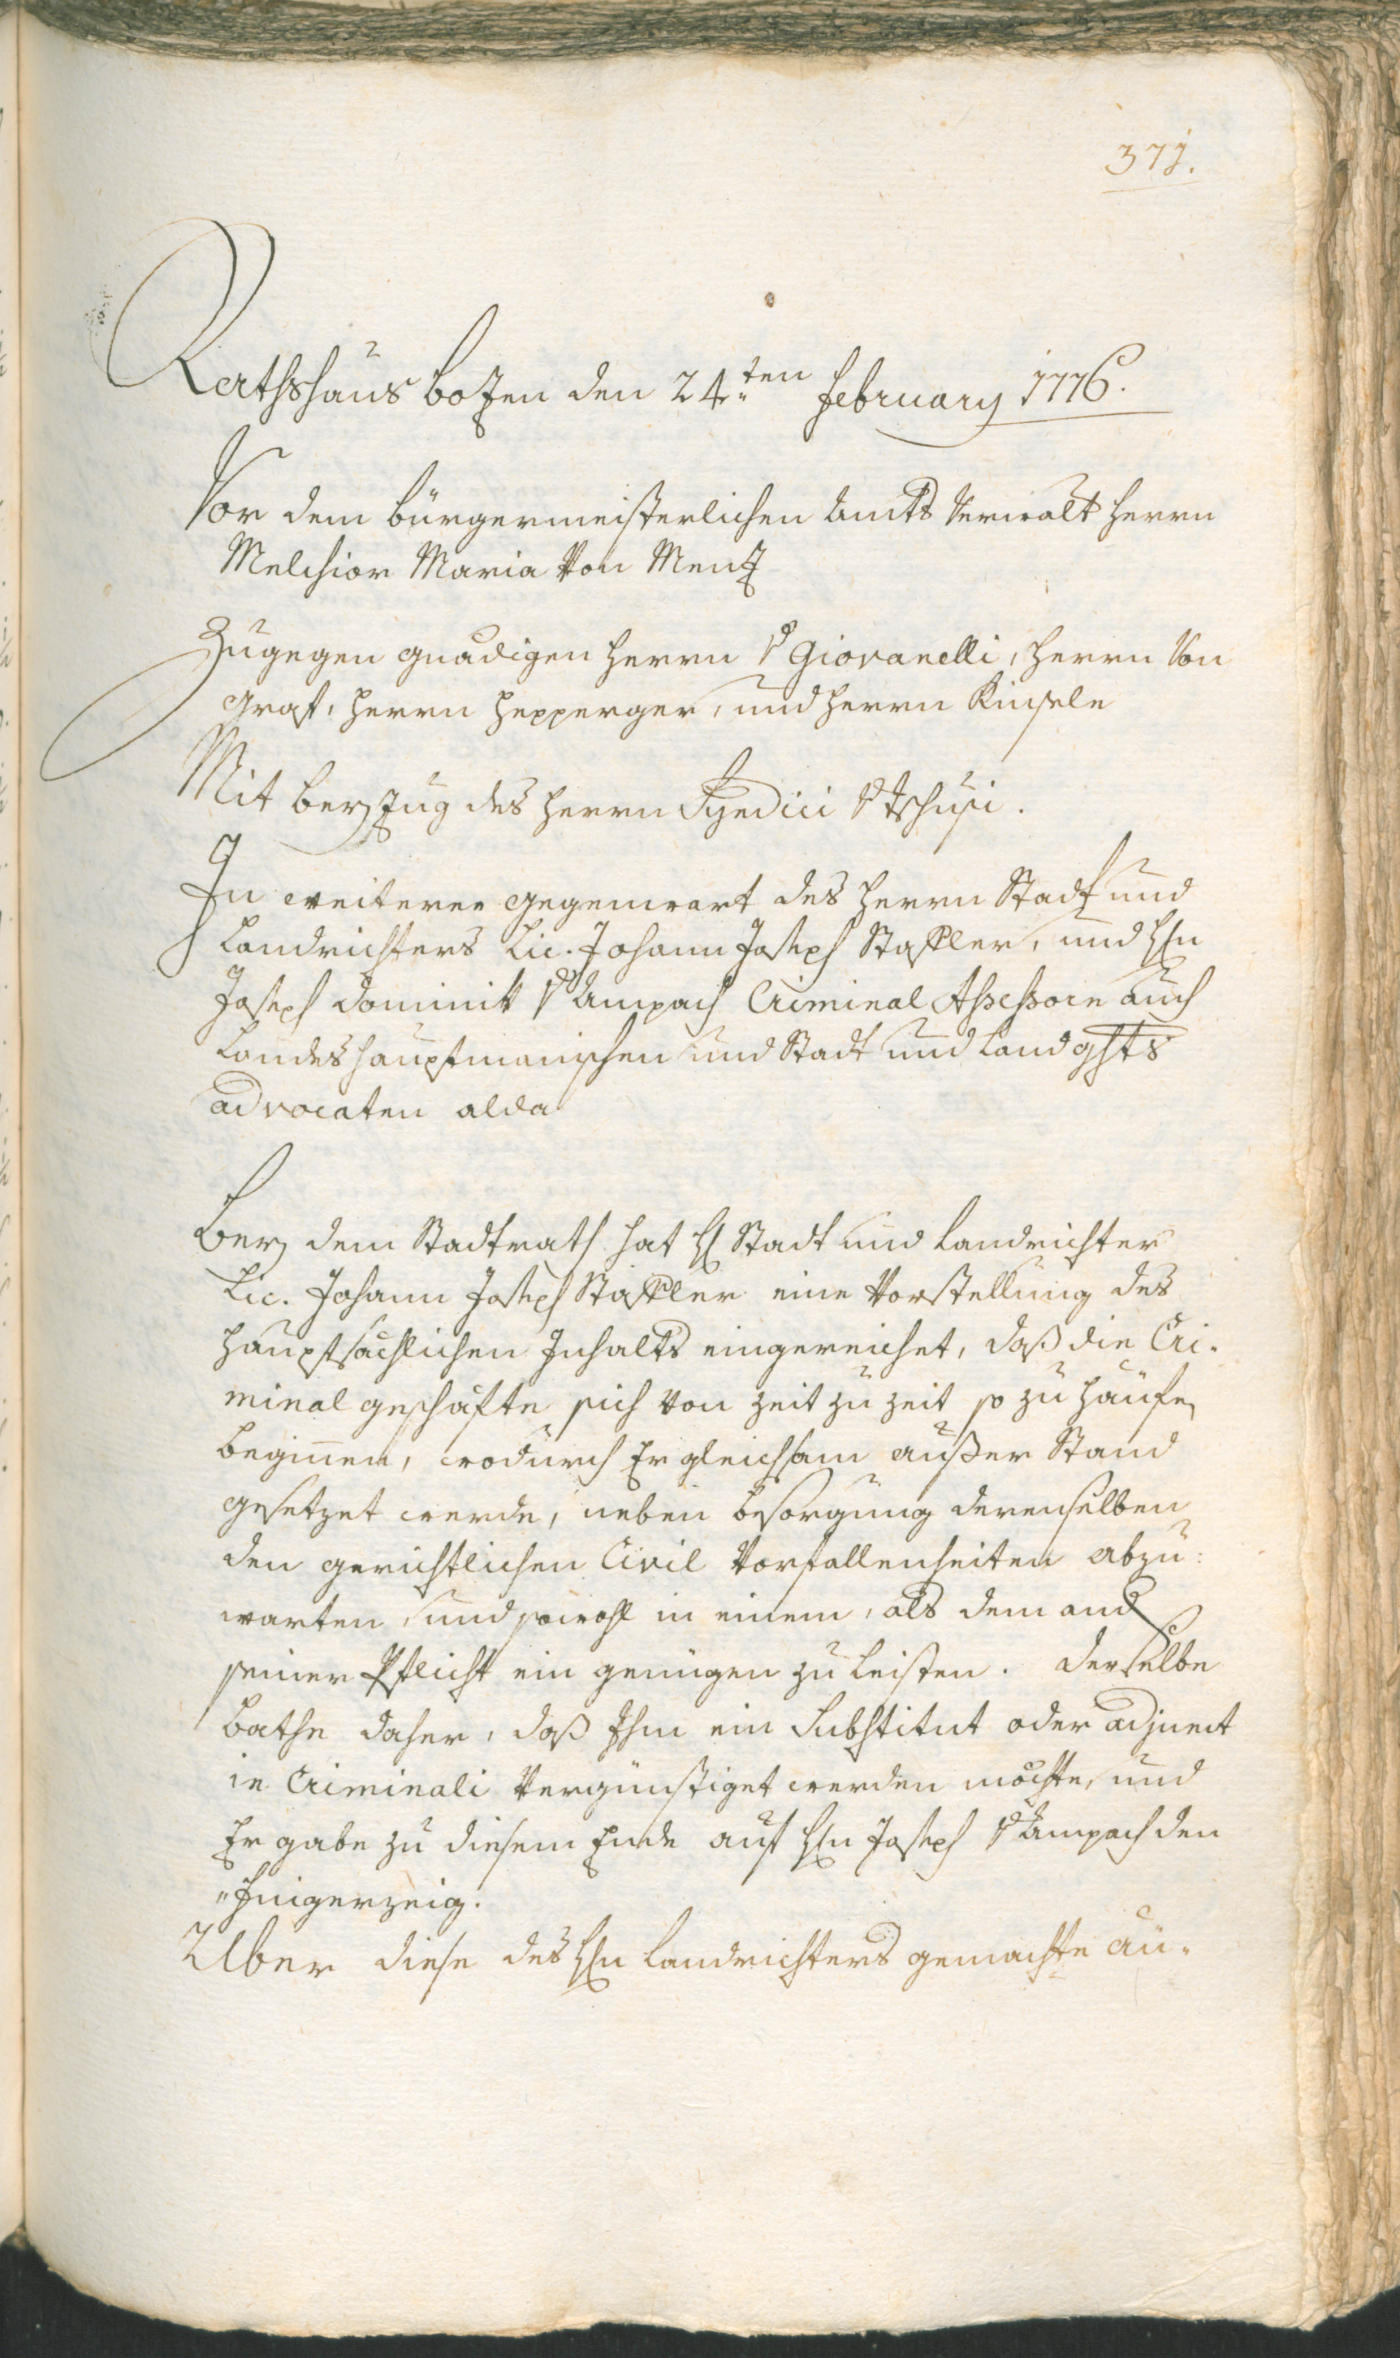 371.
Rathshaus Bozen den 24.ten February 1776.
Vor dem bürgermeisterlichen Amts Verwalt Herrn
Melchior Maria Von Menz
Zugegen gnädigen Herrn v Giovanelli, Herrn Von
Graf, Herrn Hepperger, und Herrn Kinsele
Mit Beyzug des Herrn Syndici v Tschusi.
In weiterer Gegenwart des Herrn Stadt und
Landrichters Lic. Johann Joseph Stapler, und Hn
Joseph Dominik v Anpach Criminal Assessorn auch
Landeshauptmanischen und Stadt und Landghts
advocaten alda
Bey dem Stadtrath hat H Stadt und Landrichter
Lic. Johann Joseph Stapler eine Vorstellung des
hauptsächlichen Inhalts eingereichet, daß die Cri-
minal geschäfte sich von Zeit zu Zeit so zu häufen
beginnen, wodurch Er gleichsam außer Stand
gesetzet werde, neben besorgung derenselben
den gerichtlichen Civil Vorfallenheiten abzu-
warten und sowohl in einem, als dem and
seiner Pflicht ein genügen zu leisten. Derselbe
bathe daher, daß Ihm ein Substitut oder adjunct
in Criminali Vergünstiget werden möchte, und
Er gabe zu diesem Ende auf Hn Joseph v Anpach den
"Fingerzeig.
Uber diese des Hn Landrichters gemachte an-